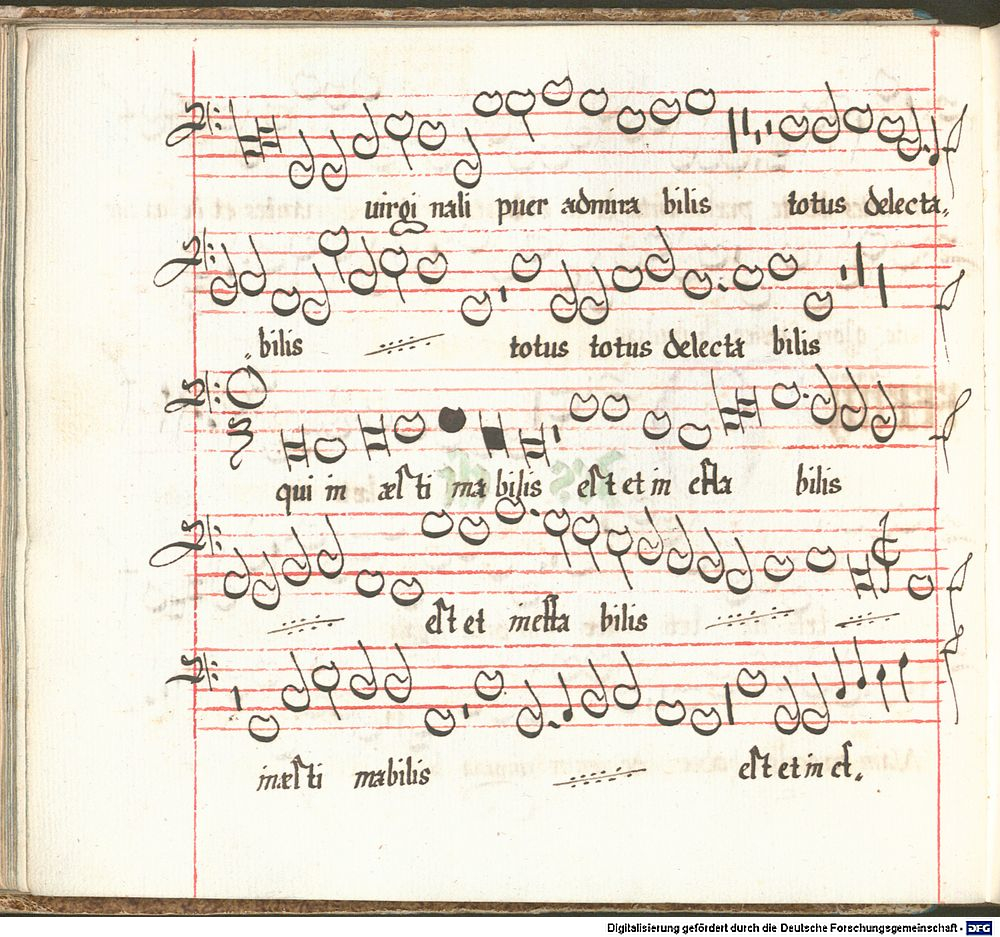 uirgi nali puer admira bilis totus delecta
bilis totus totus delecta bilis
qui in æsti ma bilis est et in esta bilis
est et inesta bilis
inæsti mabilis est et in est
Digitalisierung gefördert durch die Deutsche Forschungsgemeinschaft - DFG